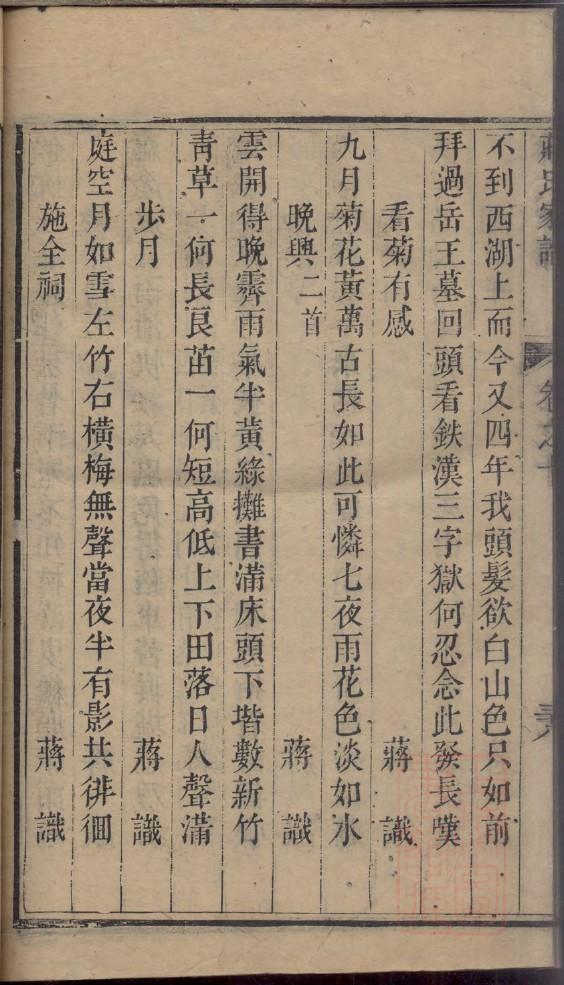 蔣氏家 卷之十
不到西湖上而今又四年我頭髮欲白山色只如前
拜過岳王墓回頭看鉄漢三字獄何忍念此發長嘆
看菊有感 蔣識
九月菊花黃萬古長如此可憐七夜雨花色淡如水
晚興二首 蔣識
雲開得晚霽雨氣半黃綠攤書滿床頭下堦數新竹
靑草一何長良苗一何短高低上下田落日人聲滿
步月 蔣識
庭空月如雪左竹右橫梅無聲當夜半有影共徘徊
施全祠 蔣識